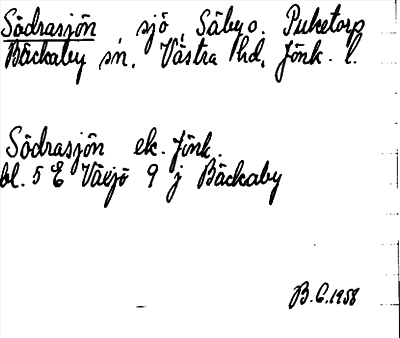 Södrasjön, sjö, Säby o. Puketorp
Bäckaby sn. Västra hd, Jönk. l.
Södrasjön ek. Jönk.
bl. 5 E Växjö 9 j Bäckaby
B.G. 1958